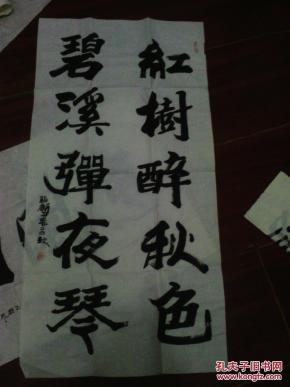 紅樹醉秋色
碧溪彈夜琴
孔夫子旧书网